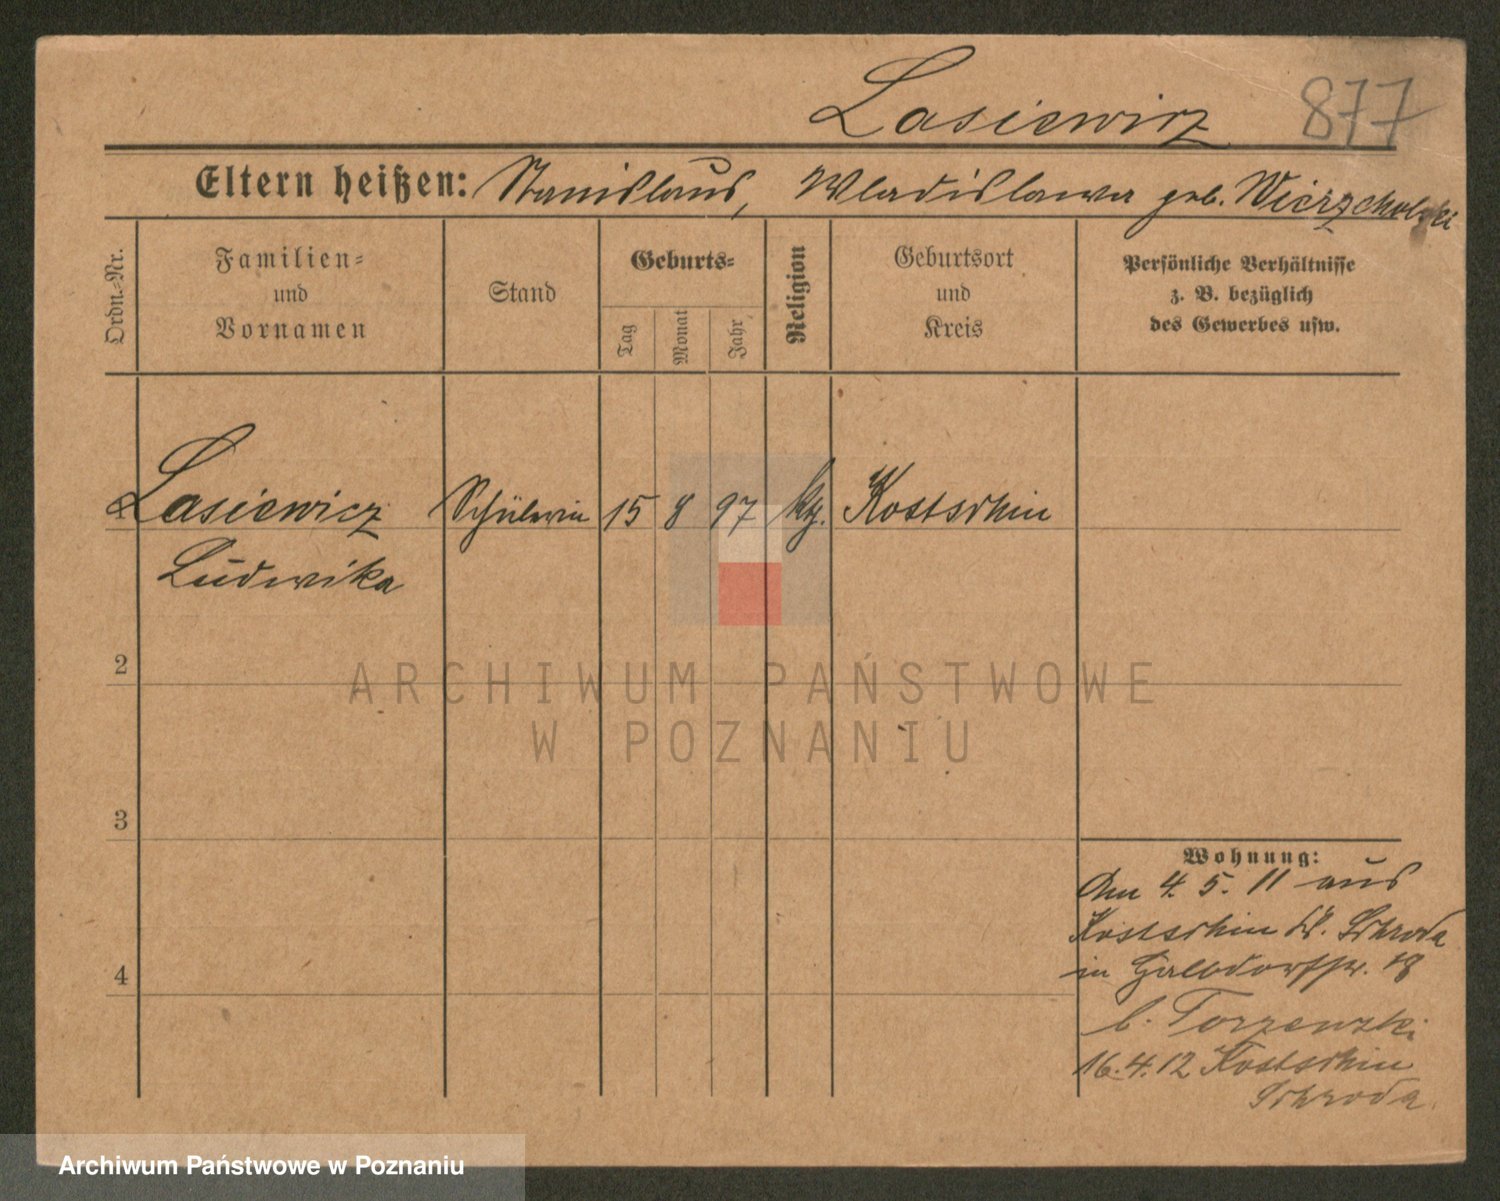 Lasiewicz 877
Eltern heißen: Stanislaus, Wladislawa geb. Wierzcholski
Ordn.-Nr.
Familien-
und
Vornamen
Stand
Geburts-
Tag
Monat
Jahr
Religion
Geburtsort
und
Kreis
Persönliche Verhältnisse
z. B. bezüglich
des Gewerbes usw.
1 Lasiewicz Schülerin 15 8 97 ktl. Kostschin
Ludwika
2
3
4
Wohnung:
Am 4. 5. 11 aus
Kostschin Schroda
in Halbdorfstr. 18
b. Torzewski
16.4.12 Kostschin
Schroda
ARCHIWUM PAŃSTWOWE
W POZNANIU
Archiwum Państwowe w Poznaniu